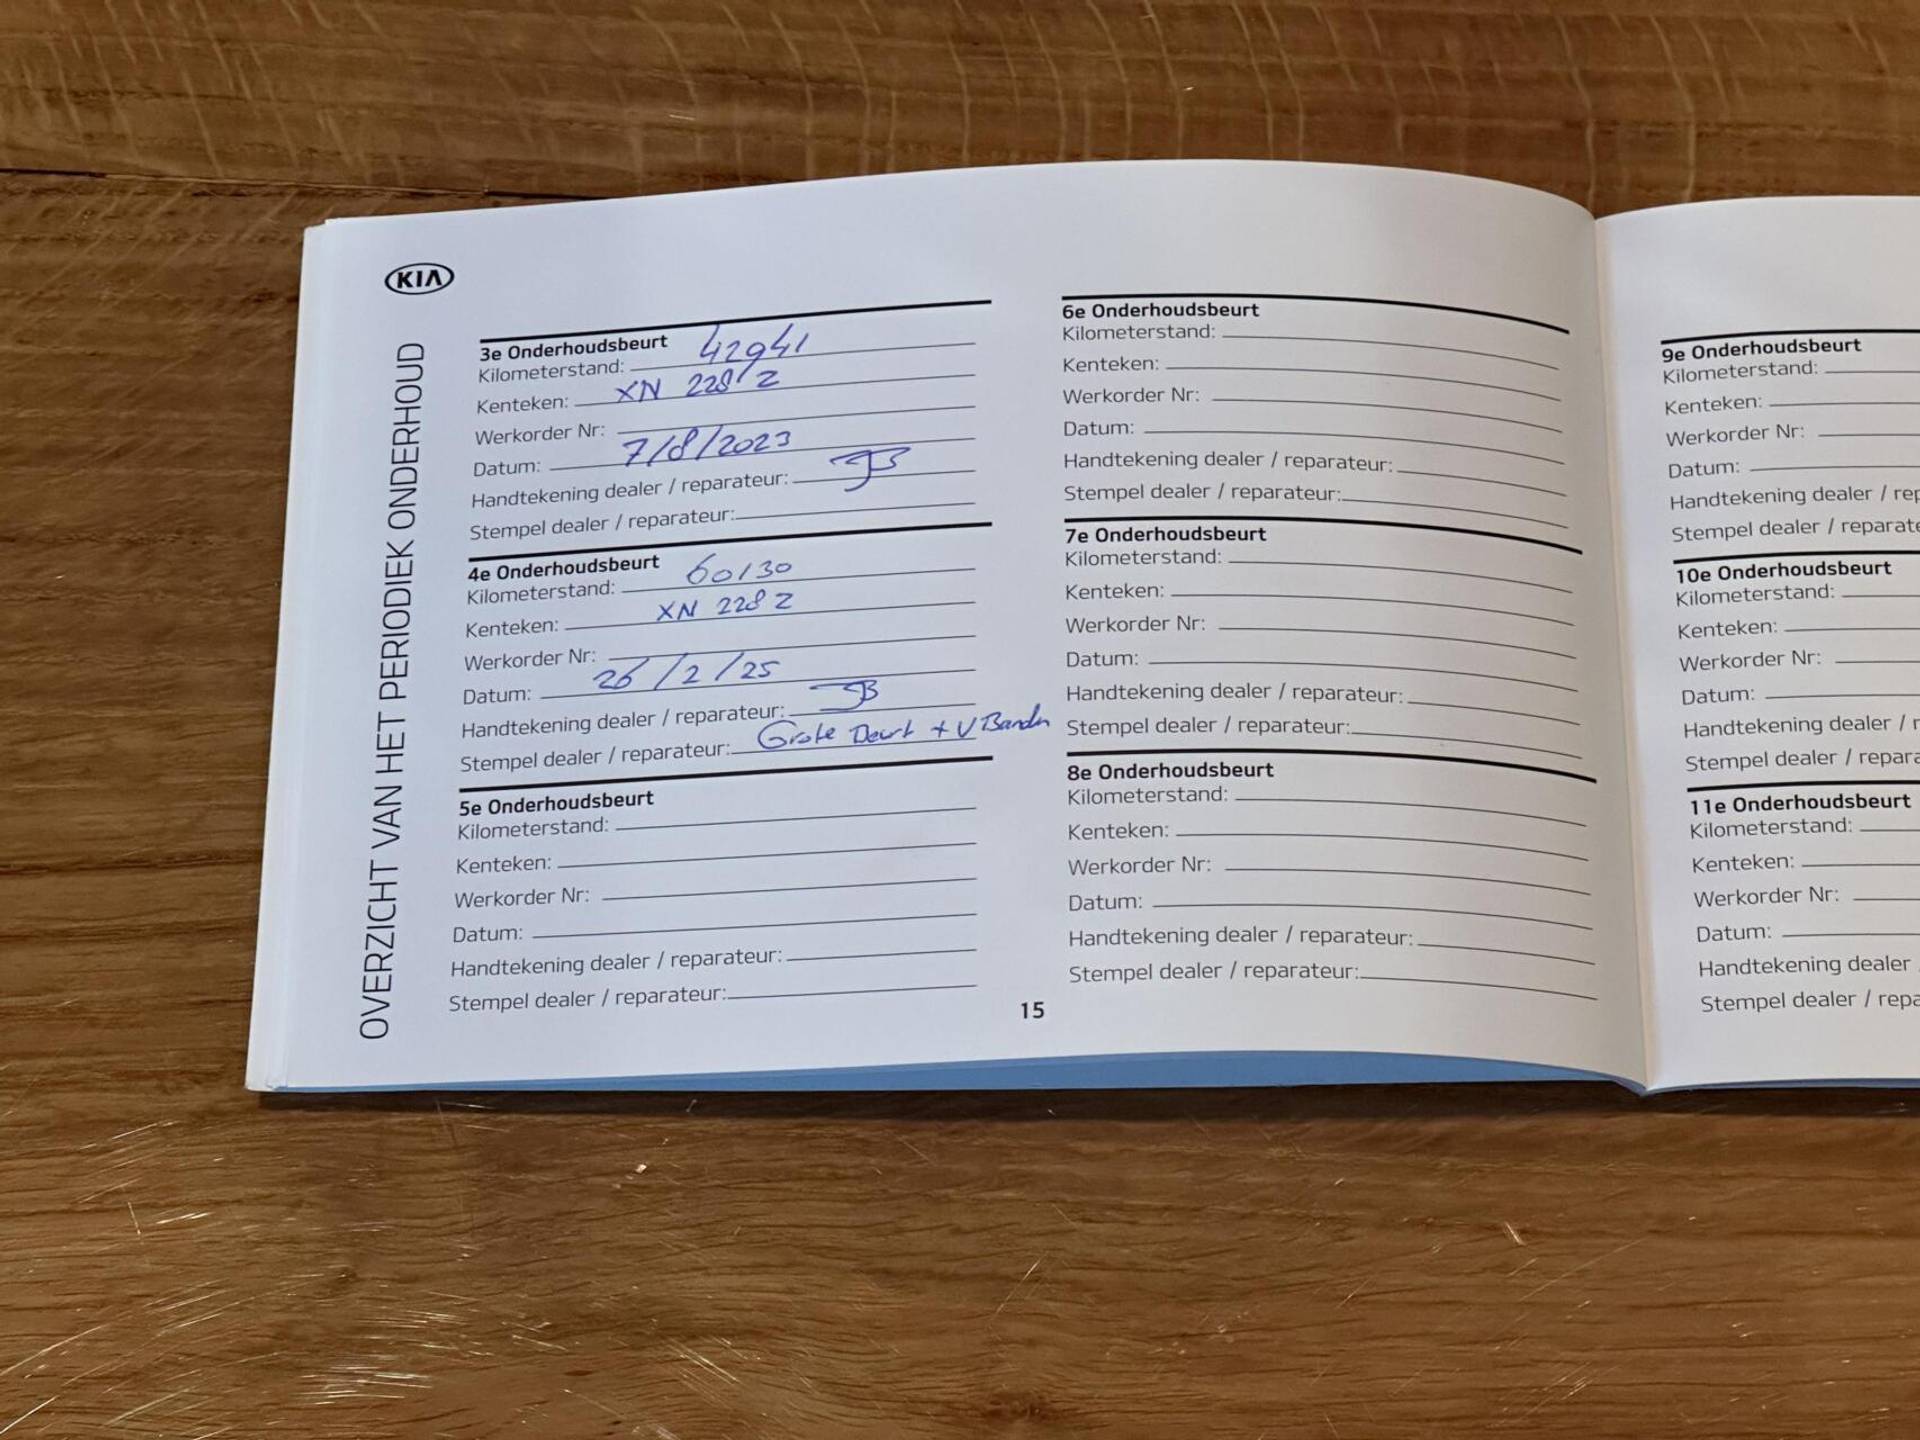 KIA
OVERZICHT VAN HET PERIODIEK ONDERHOUD
3e Onderhoudsbeurt
Kilometerstand: 42941
Kenteken: XN 228 Z
Werkorder Nr:
Datum: 7/8/2023
Handtekening dealer / reparateur:
Stempel dealer / reparateur:
4e Onderhoudsbeurt
Kilometerstand: 60130
Kenteken: XN 228 Z
Werkorder Nr:
Datum: 26/2/25
Handtekening dealer / reparateur:
Stempel dealer / reparateur: Grote Beurt + V Banden
5e Onderhoudsbeurt
Kilometerstand:
Kenteken:
Werkorder Nr:
Datum:
Handtekening dealer / reparateur:
Stempel dealer / reparateur:
6e Onderhoudsbeurt
Kilometerstand:
Kenteken:
Werkorder Nr:
Datum:
Handtekening dealer / reparateur:
Stempel dealer / reparateur:
7e Onderhoudsbeurt
Kilometerstand:
Kenteken:
Werkorder Nr:
Datum:
Handtekening dealer / reparateur:
Stempel dealer / reparateur:
8e Onderhoudsbeurt
Kilometerstand:
Kenteken:
Werkorder Nr:
Datum:
Handtekening dealer / reparateur:
Stempel dealer / reparateur:
15
9e Onderhoudsbeurt
Kilometerstand:
Kenteken:
Werkorder Nr:
Datum:
Handtekening dealer / rep
Stempel dealer / reparate
10e Onderhoudsbeurt
Kilometerstand:
Kenteken:
Werkorder Nr:
Datum:
Handtekening dealer / r
Stempel dealer / repara
11e Onderhoudsbeurt
Kilometerstand:
Kenteken:
Werkorder Nr:
Datum:
Handtekening dealer
Stempel dealer / repa